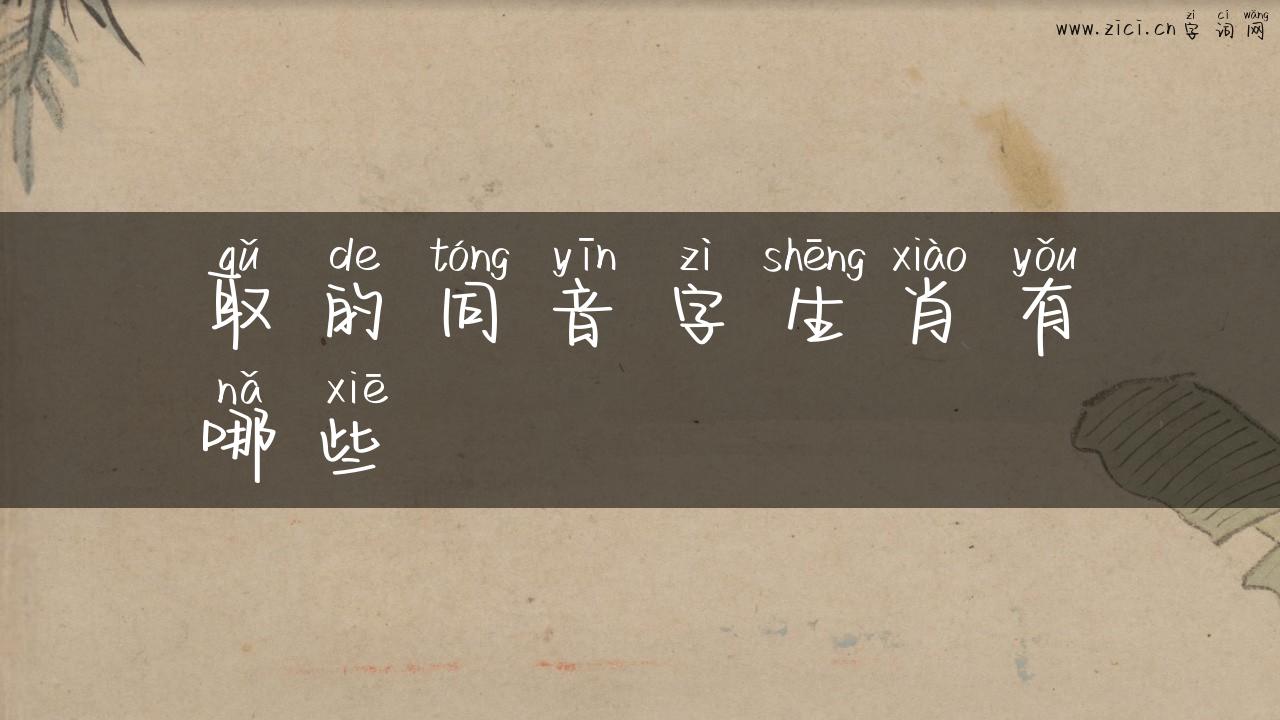 zì cí wǎng
www.zici.cn 字 词 网
qǔ de tóng yīn zì shēng xiào yǒu
取 的 同 音 字 生 肖 有
nǎ xiē
哪 些